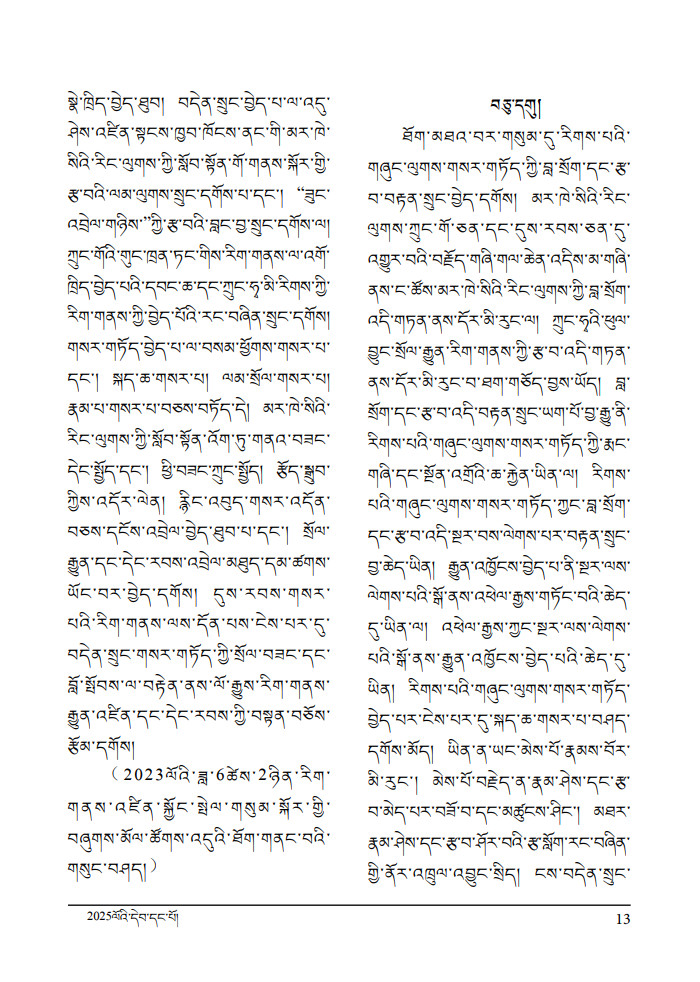 སྣེ་ཁྲིད་བྱེད་ཐུབ། བདེན་སྲུང་བྱེད་པ་ལ་འདུ་
ཤེས་འཛིན་སྟངས་ཁྱབ་ཁོངས་ནང་གི་མར་ཁེ་
སིའི་རིང་ལུགས་ཀྱི་སློབ་སྟོན་གོ་གནས་སྐོར་གྱི་
རྩ་བའི་ལམ་ལུགས་སྲུང་དགོས་པ་དང་། “ཟུང་
འབྲེལ་གཉིས་”ཀྱི་རྩ་བའི་བླང་བྱ་སྲུང་དགོས་ལ།
ཀྲུང་གོའི་གུང་ཁྲན་ཏང་གིས་རིག་གནས་ལ་འགོ་
ཁྲིད་བྱེད་པའི་དབང་ཆ་དང་ཀྲུང་ཧྭ་མི་རིགས་ཀྱི་
རིག་གནས་ཀྱི་བྱེད་པོའི་རང་བཞིན་སྲུང་དགོས།
གསར་གཏོད་བྱེད་པ་ལ་བསམ་ཕྱོགས་གསར་པ་
དང་། སྐད་ཆ་གསར་པ། ལམ་སྲོལ་གསར་པ།
རྣམ་པ་གསར་པ་བཅས་བཏོད་དེ། མར་ཁེ་སིའི་
རིང་ལུགས་ཀྱི་སློབ་སྟོན་འོག་ཏུ་གནའ་བཟང་
དེང་སྤྱོད་དང་། ཕྱི་བཟང་ཀྲུང་སྤྱོད། རྩོད་སྒྲུབ་
ཀྱིས་འདོར་ལེན། རྙིང་འབུད་གསར་འདོན་
བཅས་དངོས་འབྲེལ་བྱེད་ཐུབ་པ་དང་། སྲོལ་
རྒྱུན་དང་དེང་རབས་འབྲེལ་མཐུད་དམ་ཚགས་
ཡོང་བར་བྱེད་དགོས། དུས་རབས་གསར་
པའི་རིག་གནས་ལས་དོན་པས་ངེས་པར་དུ་
བདེན་སྲུང་གསར་གཏོད་ཀྱི་སྲོལ་བཟང་དང་
བློ་སྤོབས་ལ་བརྟེན་ནས་ལོ་རྒྱུས་རིག་གནས་
རྒྱུན་འཛིན་དང་དེང་རབས་ཀྱི་བསྟན་བཅོས་
རྩོམ་དགོས།
（2023ལོའི་ཟླ་6ཚེས་2ཉིན་རིག་
གནས་འཛིན་སྐྱོང་སྤེལ་གསུམ་སྐོར་གྱི་
བཞུགས་མོལ་ཚོགས་འདུའི་ཐོག་གནང་བའི་
གསུང་བཤད།）
བཅུ་དགུ།
ཐོག་མཐའ་བར་གསུམ་དུ་རིགས་པའི་
གཞུང་ལུགས་གསར་གཏོད་ཀྱི་བླ་སྲོག་དང་རྩ་
བ་བརྟན་སྲུང་བྱེད་དགོས། མར་ཁེ་སིའི་རིང་
ལུགས་ཀྲུང་གོ་ཅན་དང་དུས་རབས་ཅན་དུ་
འགྱུར་བའི་བརྗོད་གཞི་གལ་ཆེན་འདིས་མ་གཞི་
ནས་ང་ཚོས་མར་ཁེ་སིའི་རིང་ལུགས་ཀྱི་བླ་སྲོག་
འདི་གཏན་ནས་དོར་མི་རུང་ལ། ཀྲུང་ཧྭའི་ཕུལ་
བྱུང་སྲོལ་རྒྱུན་རིག་གནས་ཀྱི་རྩ་བ་འདི་གཏན་
ནས་དོར་མི་རུང་བ་ཐག་གཅོད་བྱས་ཡོད། བླ་
སྲོག་དང་རྩ་བ་འདི་བརྟན་སྲུང་ཡག་པོ་བྱ་རྒྱུ་ནི་
རིགས་པའི་གཞུང་ལུགས་གསར་གཏོད་ཀྱི་རྨང་
གཞི་དང་སྔོན་འགྲོའི་ཆ་རྐྱེན་ཡིན་ལ། རིགས་
པའི་གཞུང་ལུགས་གསར་གཏོད་ཀྱང་བླ་སྲོག་
དང་རྩ་བ་འདི་སྔར་བས་ལེགས་པར་བརྟན་སྲུང་
བྱ་ཆེད་ཡིན། རྒྱུན་འཁྱོངས་བྱེད་པ་ནི་སྔར་ལས་
ལེགས་པའི་སྒོ་ནས་འཕེལ་རྒྱས་གཏོང་བའི་ཆེད་
དུ་ཡིན་ལ། འཕེལ་རྒྱས་ཀྱང་སྔར་ལས་ལེགས་
པའི་སྒོ་ནས་རྒྱུན་འཁྱོངས་བྱེད་པའི་ཆེད་དུ་
ཡིན། རིགས་པའི་གཞུང་ལུགས་གསར་གཏོད་
བྱེད་པར་ངེས་པར་དུ་སྐད་ཆ་གསར་པ་བཤད་
དགོས་མོད། ཡིན་ན་ཡང་མེས་པོ་རྣམས་བོར་
མི་རུང་། མེས་པོ་བརྗེད་ན་རྣམ་ཤེས་དང་རྩ་
བ་མེད་པར་བཟོ་བ་དང་མཚུངས་ཤིང་། མཐར་
རྣམ་ཤེས་དང་རྩ་བ་ཤོར་བའི་རྩ་སློག་རང་བཞིན་
གྱི་ནོར་འཁྲུལ་འབྱུང་སྲིད། ངས་བདེན་སྲུང་
2025ལོའི་དེབ་དང་པོ།
13